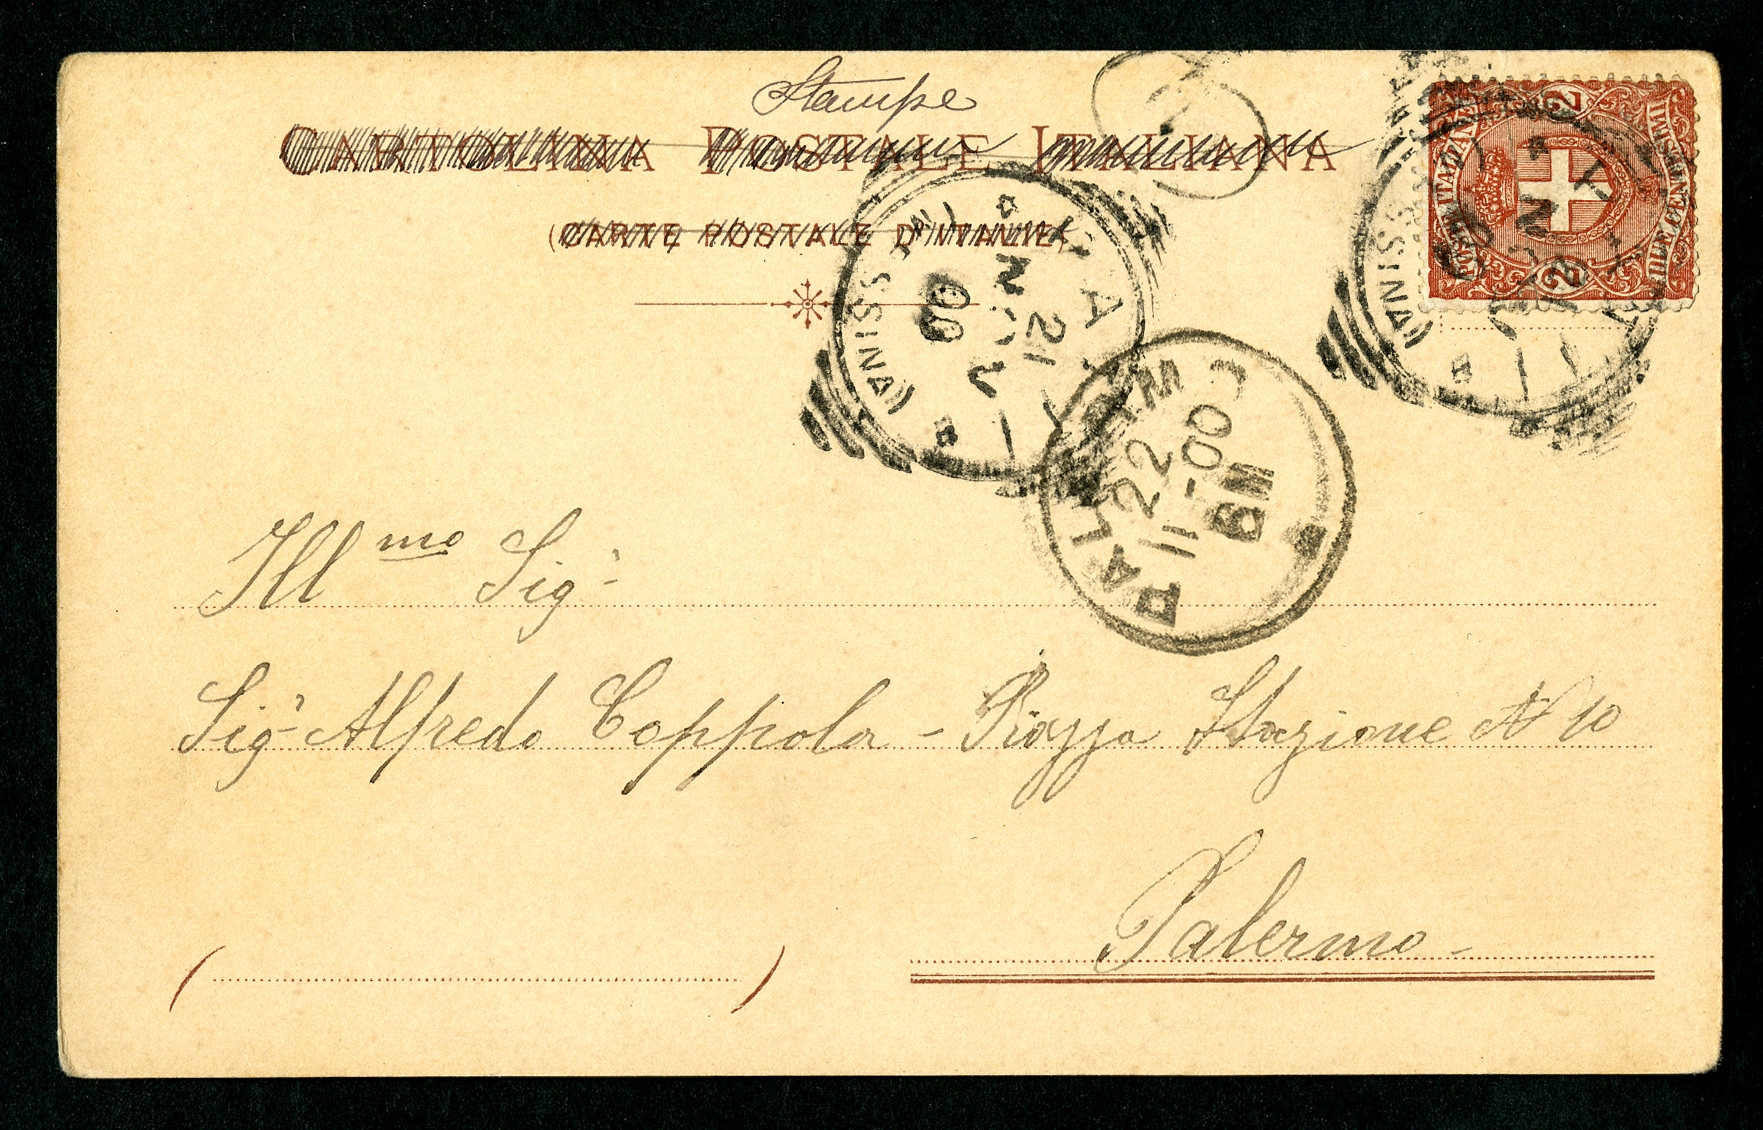 Stampe
CARTOLINA POSTALE ITALIANA
(CARTE POSTALE D'ITALIE)
POSTE ITALIANE
2 2
DUE CENTESIMI
21
NOV
00
22
11-00
6M
Ill mo Sigr
Sigr Alfredo Coppola - Piazza Stazione N 10
Palermo -